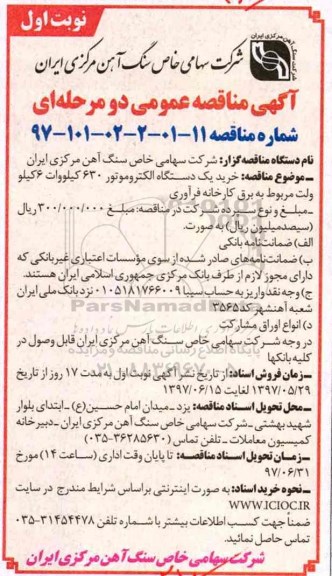 نوبت اول
شرکت سهامی خاص سنگ آهن مرکزی ایران
آگهی مناقصه عمومی دو مرحله‌ای
شماره مناقصه ۱۱-۰۱-۲-۰۲-۱۰۱-۹۷
نام دستگاه مناقصه‌گزار: شرکت سهامی خاص سنگ آهن مرکزی ایران
ـ موضوع مناقصه: خرید یک دستگاه الکتروموتور ۶۳۰ کیلووات ۶ کیلو
ولت مربوط به برق کارخانه فرآوری
ـ مبلغ و نوع سپرده شرکت در مناقصه: مبلغ ۳۰۰/۰۰۰/۰۰۰ ریال
(سیصدمیلیون ریال) به صورت.
الف) ضمانت‌نامه بانکی
ب) ضمانت‌نامه‌های صادر شده از سوی مؤسسات اعتباری غیربانکی که
دارای مجوز لازم از طرف بانک مرکزی جمهوری اسلامی ایران هستند.
ج) وجه نقد واریز به حساب سیبا ۰۱۰۵۱۸۱۷۶۶۰۰۹ نزد بانک ملی ایران
شعبه آهنشهر کد ۳۵۶۵
د) انواع اوراق مشارکت
در وجه شرکت سهامی خاص سنگ آهن مرکزی ایران قابل وصول در
کلیه بانکها
ـ زمان فروش اسناد: از تاریخ نشر آگهی نوبت اول به مدت ۱۷ روز از تاریخ
۱۳۹۷/۰۵/۲۹ لغایت ۱۳۹۷/۰۶/۱۵
ـ محل تحویل اسناد مناقصه: یزد ـ میدان امام حسین(ع) ـ ابتدای بلوار
شهید بهشتی ـ شرکت سهامی خاص سنگ آهن مرکزی ایران ـ دبیرخانه
کمیسیون معاملات ـ تلفن تماس (۳۶۲۸۵۶۳۰-۰۳۵)
ـ زمان تحویل اسناد مناقصه: تا پایان وقت اداری (ساعت ۱۴) مورخ
۹۷/۰۶/۳۱
ـ نحوه خرید اسناد: به صورت اینترنتی براساس شرایط مندرج در سایت
WWW.ICIOC.IR
ضمناً جهت کسب اطلاعات بیشتر با شماره تلفن ۳۱۴۵۴۴۷۸-۰۳۵
تماس حاصل نمائید.
شرکت سهامی خاص سنگ آهن مرکزی ایران